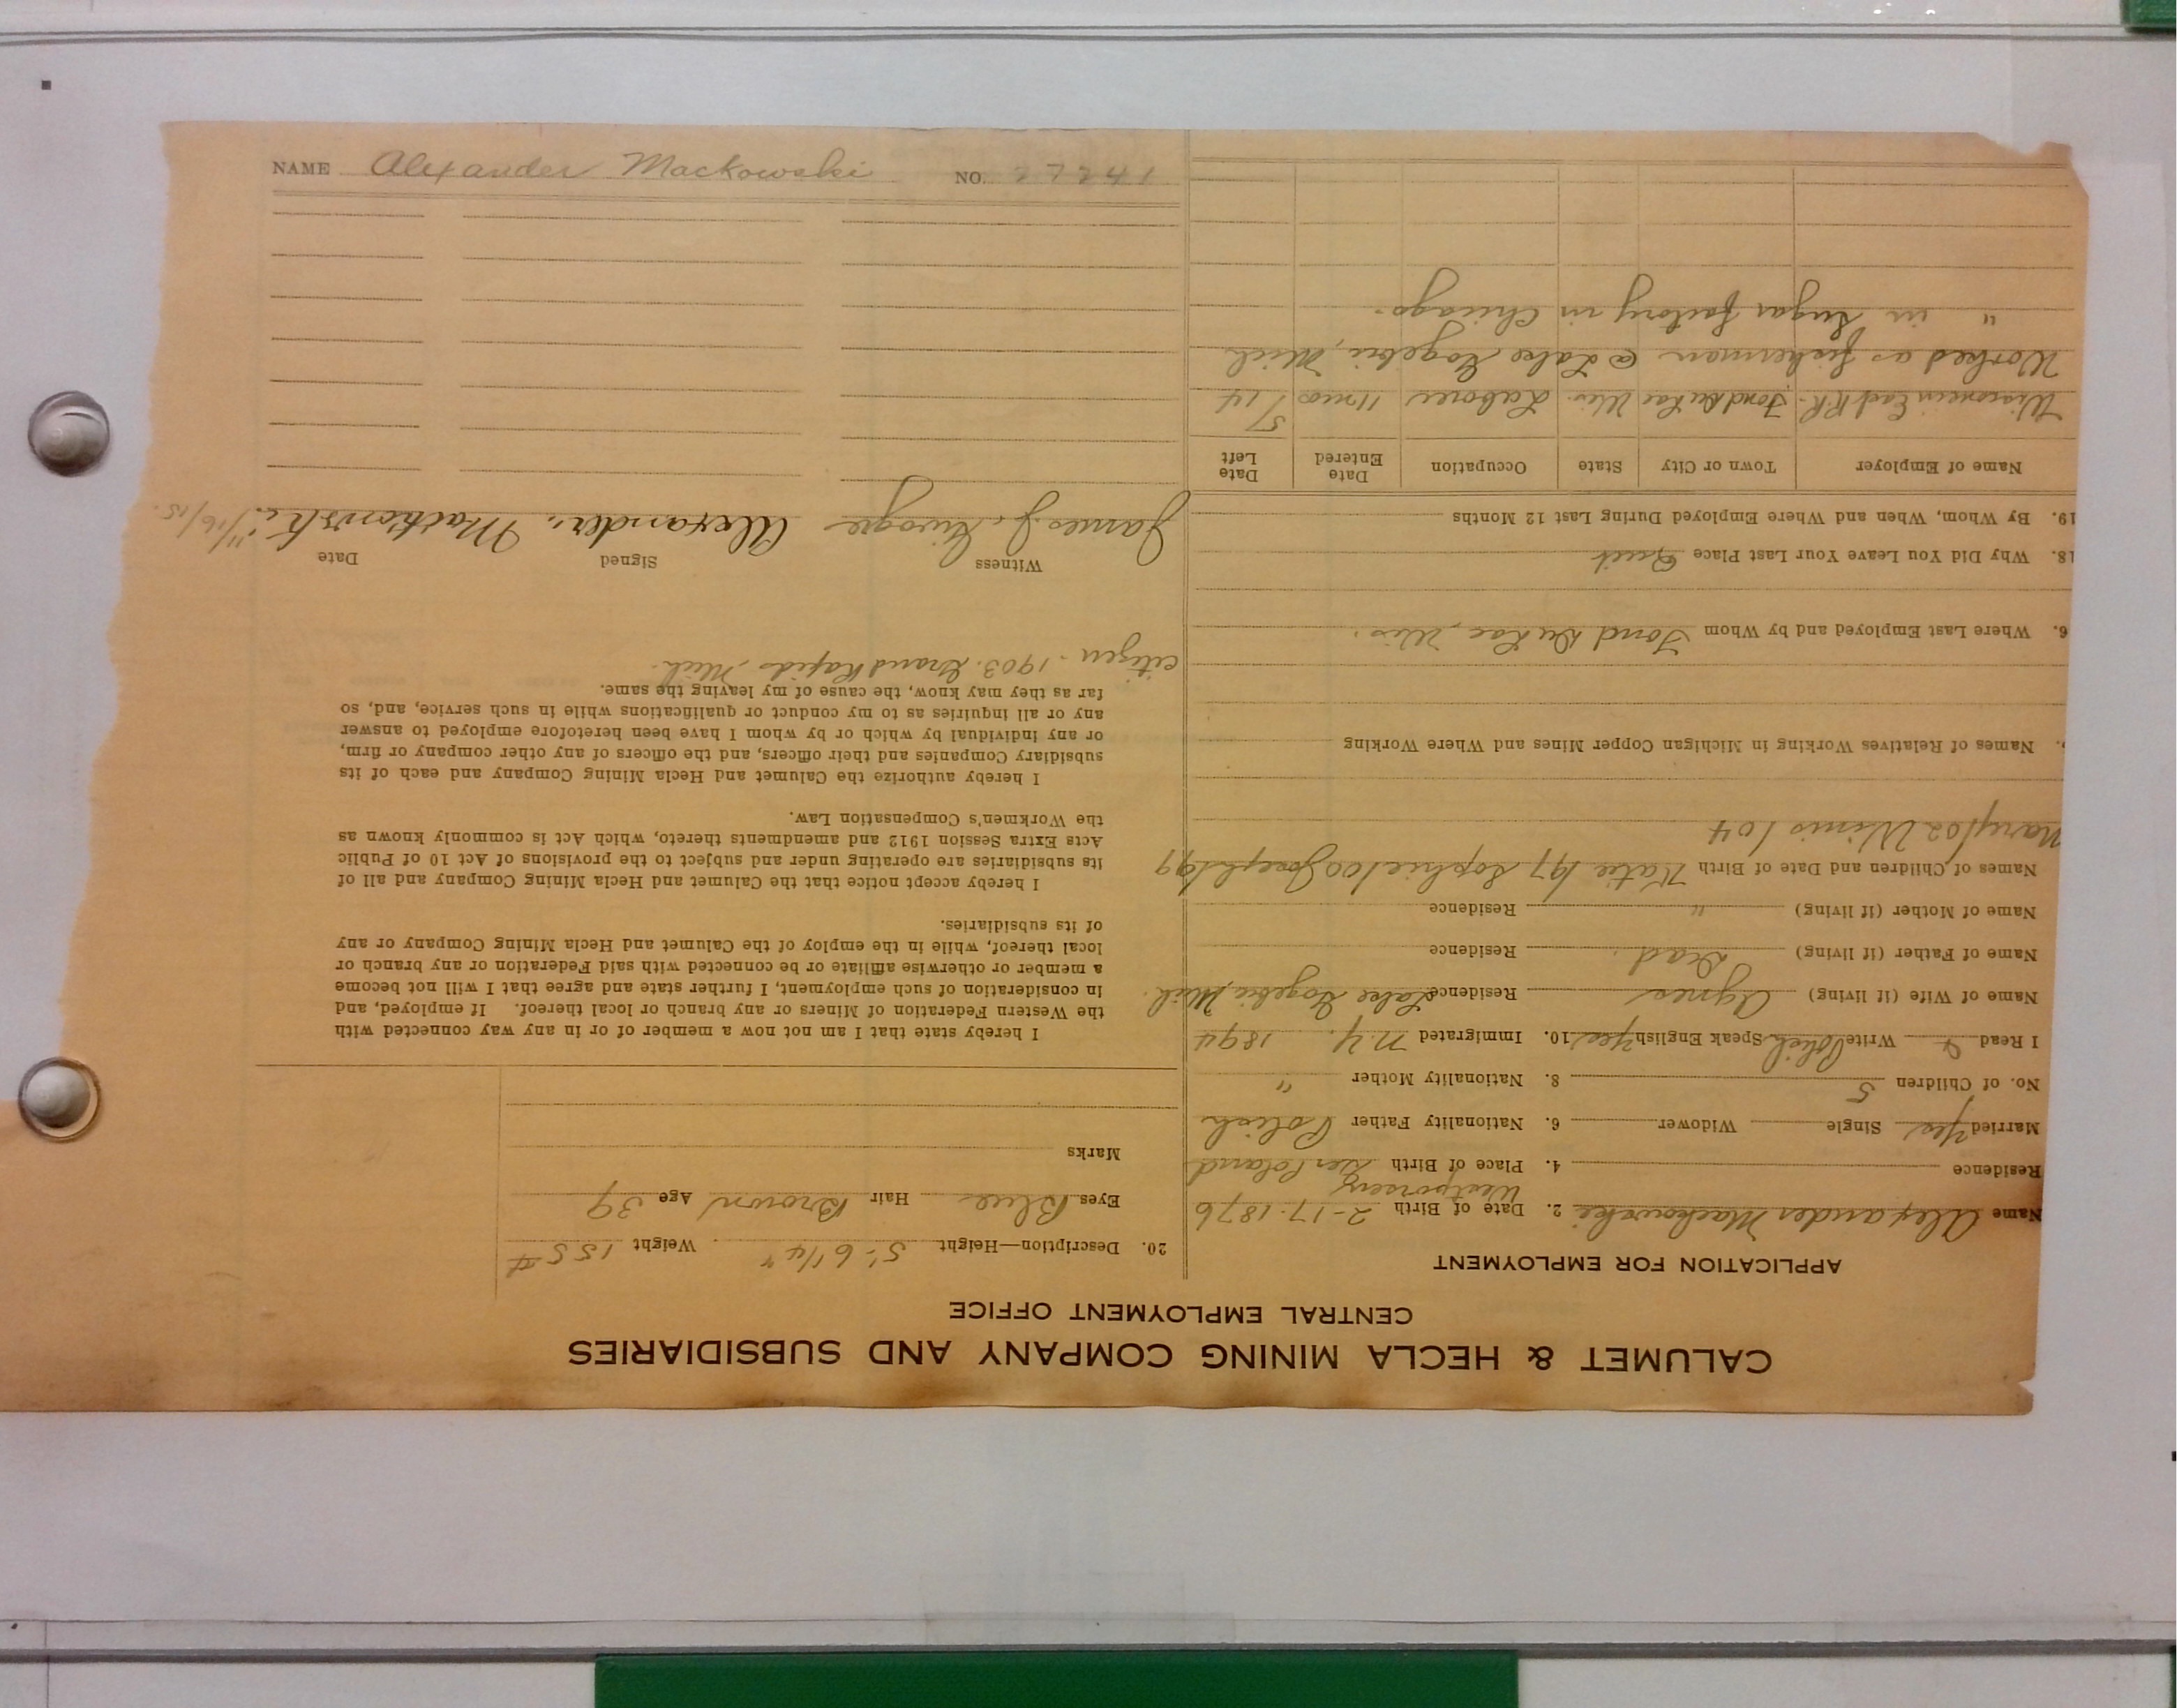 CALUMET & HECLA MINING COMPANY AND SUBSIDIARIES
CENTRAL EMPLOYMENT OFFICE
APPLICATION FOR EMPLOYMENT
Name Alexander Mackowski 2. Date of Birth 2-17-1876
Residence 4. Place of Birth Ger Poland
Married Yes Single Widower 6. Nationality Father Polish
No. of Children 5 8. Nationality Mother "
I Read & Write Polish Speak English Yes 10. Immigrated N.Y. 1894
Name of Wife (if living) Agnes Residence Lake Gogebic, Mich.
Name of Father (if living) Dead. Residence
Name of Mother (if living) " Residence
Names of Children and Date of Birth Katie/97 Sophie/00 Joseph/99
Mary/02 /04
Names of Relatives Working in Michigan Copper Mines and Where Working
6. Where Last Employed and by Whom Fond Du Lac, Wis.
18. Why Did You Leave Your Last Place Quit
19. By Whom, When and Where Employed During Last 12 Months
Name of Employer Town or City State Occupation Date Entered Date Left
Wisconsin East R.R. Fond Du Lac Wis. Laborer 11 mos 5/14
Worked as fisherman @ Lake Gogebic, Mich
" in Sugar factory in Chicago.
20. Description—Height 5'-6 1/4" Weight 155#
Eyes Blue Hair Brown Age 39
Marks
I hereby state that I am not now a member of or in any way connected with
the Western Federation of Miners or any branch or local thereof. If employed, and
in consideration of such employment, I further state and agree that I will not become
a member or otherwise affiliate or be connected with said Federation or any branch or
local thereof, while in the employ of the Calumet and Hecla Mining Company or any
of its subsidiaries.
I hereby accept notice that the Calumet and Hecla Mining Company and all of
its subsidiaries are operating under and subject to the provisions of Act 10 of Public
Acts Extra Session 1912 and amendments thereto, which Act is commonly known as
the Workmen's Compensation Law.
I hereby authorize the Calumet and Hecla Mining Company and each of its
subsidiary Companies and their officers, and the officers of any other company or firm,
or any individual by which or by whom I have been heretofore employed to answer
any or all inquiries as to my conduct or qualifications while in such service, and, so
far as they may know, the cause of my leaving the same.
citizen - 1903. Grand Rapids, Mich.
Witness Signed Date
James J. Alexander Mackowski 11/16/15.
NAME Alexander Mackowski NO. 27241